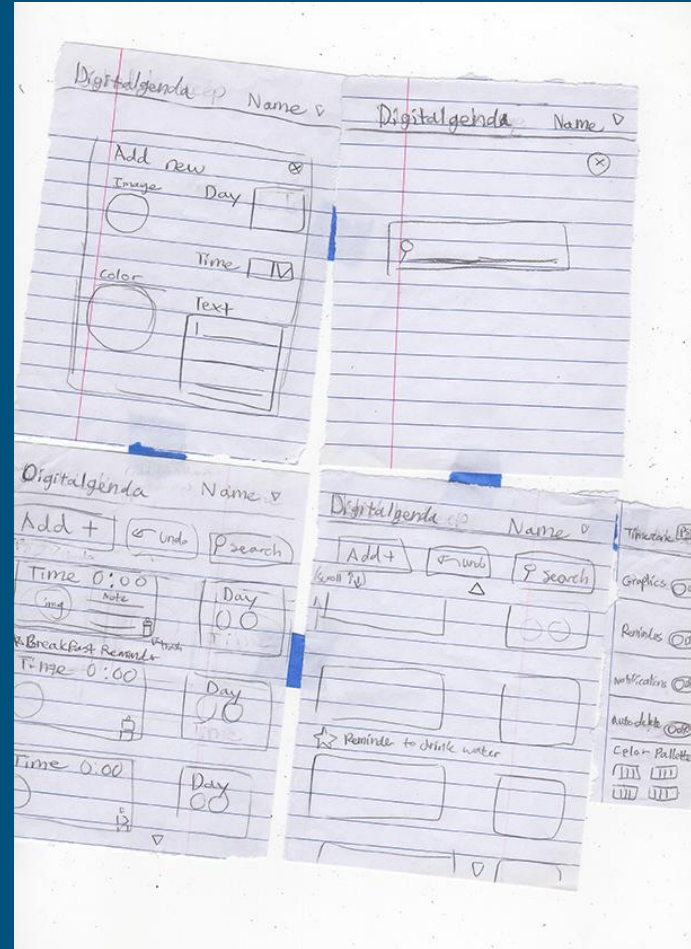 Digitalgenda Name
Add new
Image
Day
Time
Color
Text
Digitalgenda Name
Digitalgenda Name
Add +
undo
search
Time 0:00
img
Note
Day
trash
Breakfast Reminder
Time 0:00
Day
Time 0:00
Day
Digitalgenda Name
Add +
undo
search
scroll
Reminder to drink water
Graphics
Reminders
Notifications
Autodelete
Color Pallette